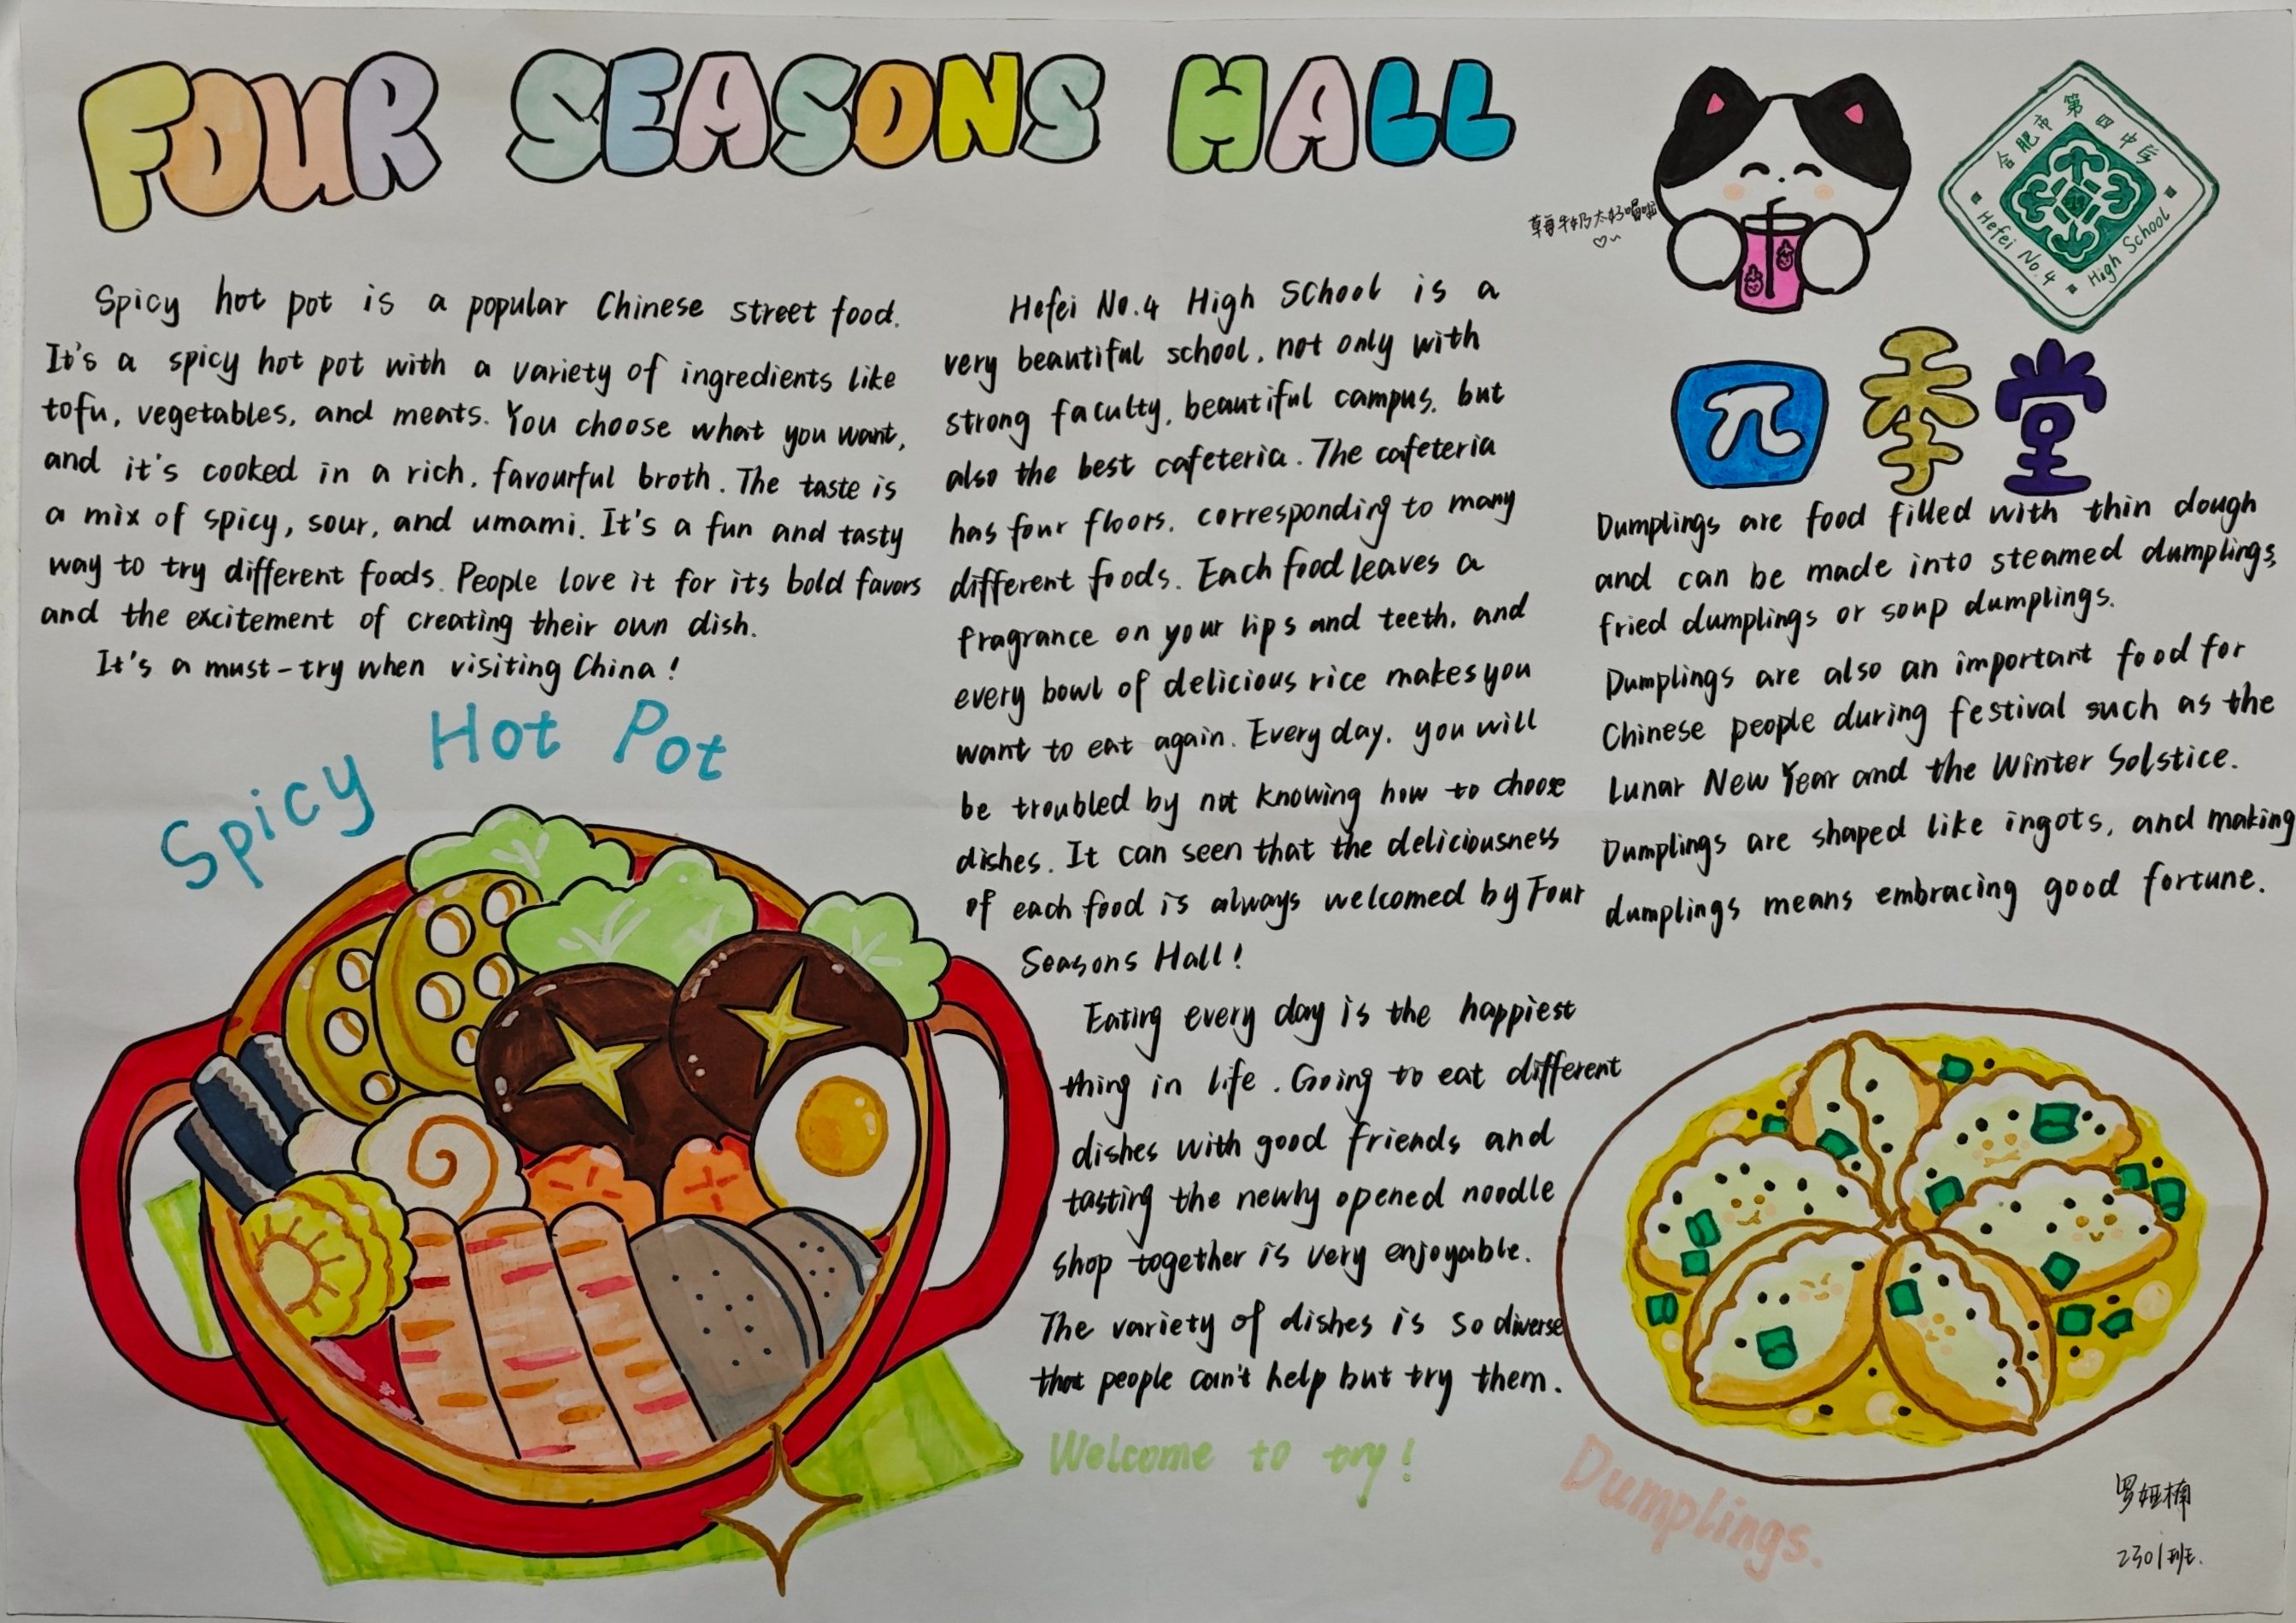 FOUR SEASONS HALL
Spicy hot pot is a popular Chinese street food.
It's a spicy hot pot with a variety of ingredients like
tofu, vegetables, and meats. You choose what you want,
and it's cooked in a rich, favourful broth. The taste is
a mix of spicy, sour, and umami. It's a fun and tasty
way to try different foods. People love it for its bold favors
and the excitement of creating their own dish.
It's a must-try when visiting China!
Spicy Hot Pot
Hefei No.4 High School is a
very beautiful school, not only with
strong faculty, beautiful campus, but
also the best cafeteria. The cafeteria
has four floors, corresponding to many
different foods. Each food leaves a
fragrance on your lips and teeth, and
every bowl of delicious rice makes you
want to eat again. Every day, you will
be troubled by not knowing how to choose
dishes. It can seen that the deliciousness
of each food is always welcomed by Four
Seasons Hall!
Eating every day is the happiest
thing in life. Going to eat different
dishes with good friends and
tasting the newly opened noodle
shop together is very enjoyable.
The variety of dishes is so diverse
that people can't help but try them.
Welcome to try!
草莓牛奶太好喝啦
合肥市第四中学
Hefei No.4 High School
四季堂
Dumplings are food filled with thin dough
and can be made into steamed dumplings,
fried dumplings or soup dumplings.
Dumplings are also an important food for
Chinese people during festival such as the
Lunar New Year and the Winter Solstice.
Dumplings are shaped like ingots, and making
dumplings means embracing good fortune.
Dumplings.
罗娅楠
2301班.